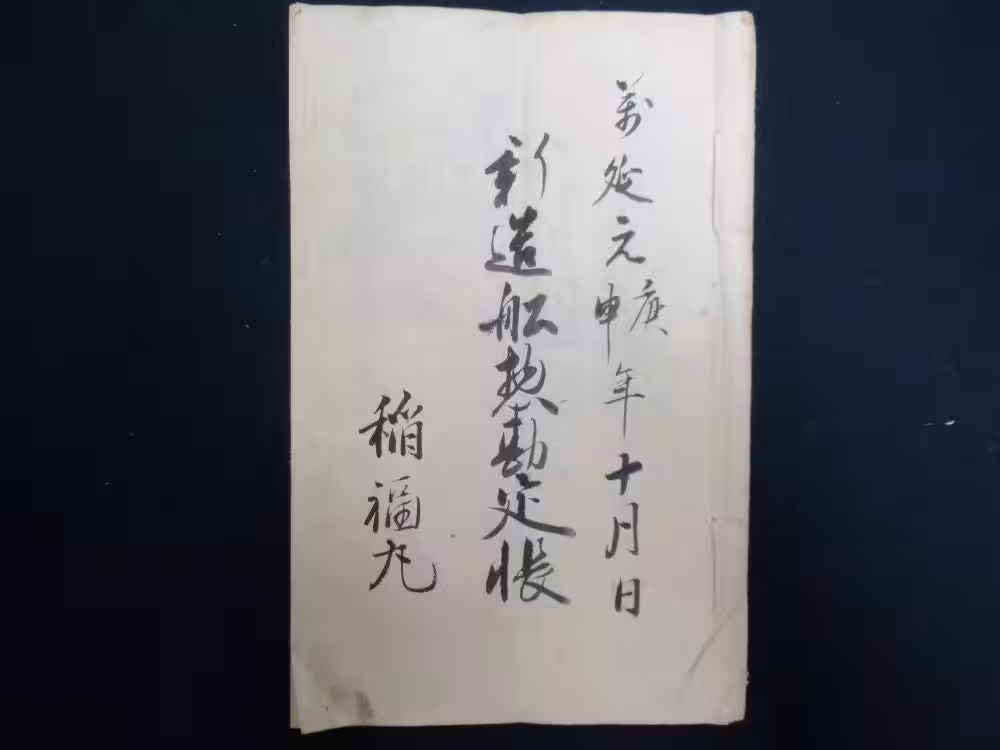 萬延元庚申年十月日
新造船惣勘定帳
稲福丸